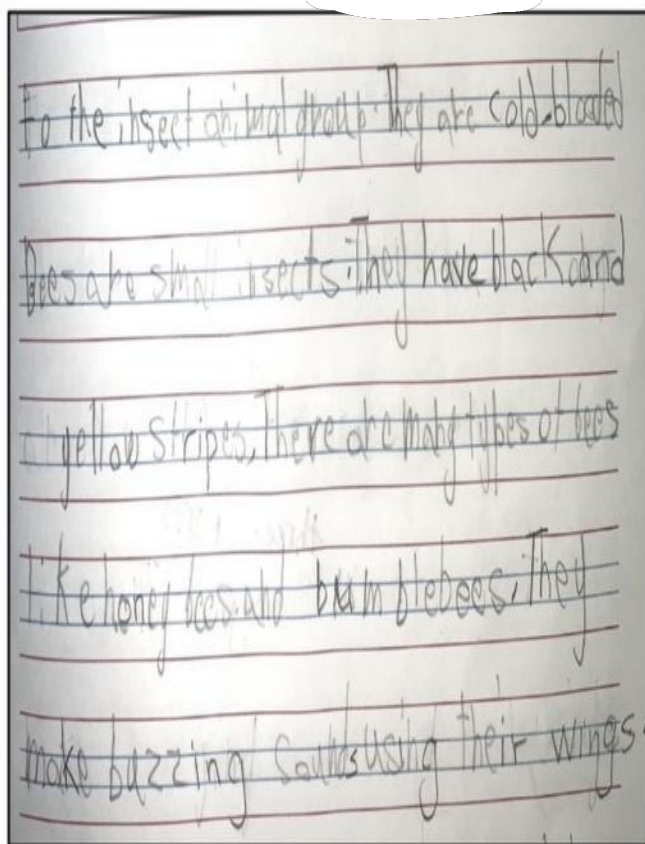 to the insect animal group. They are cold-blooded
Bees are small insects. They have black and
yellow stripes. There are many types of bees
like honey bees and bumblebees. They
make buzzing sounds using their wings.